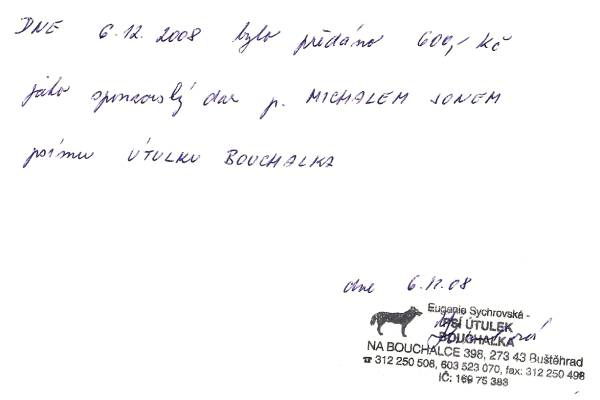 DNE 6.12. 2008 bylo předáno 600,- Kč
jako sponzorský dar p. MICHALEM JONEM
psímu ÚTULKU BOUCHALKA
dne 6.12.08
Eugenie Sychrovská -
PSÍ ÚTULEK
BOUCHALKA
NA BOUCHALCE 398, 273 43 Buštěhrad
☎ 312 250 508, 603 523 070, fax: 312 250 498
IČ: 169 75 383